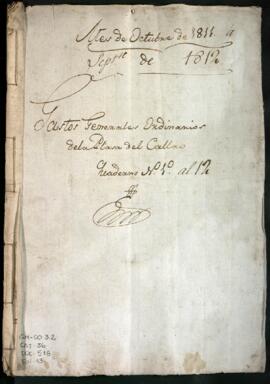 Mes de Octubre de 1811. a
Septre de 1812
Gastos Semanales Ordinarios
de la Plaza del Callao
Quaderno Nº 1º al 12
CAJ. 36
DOC. 518